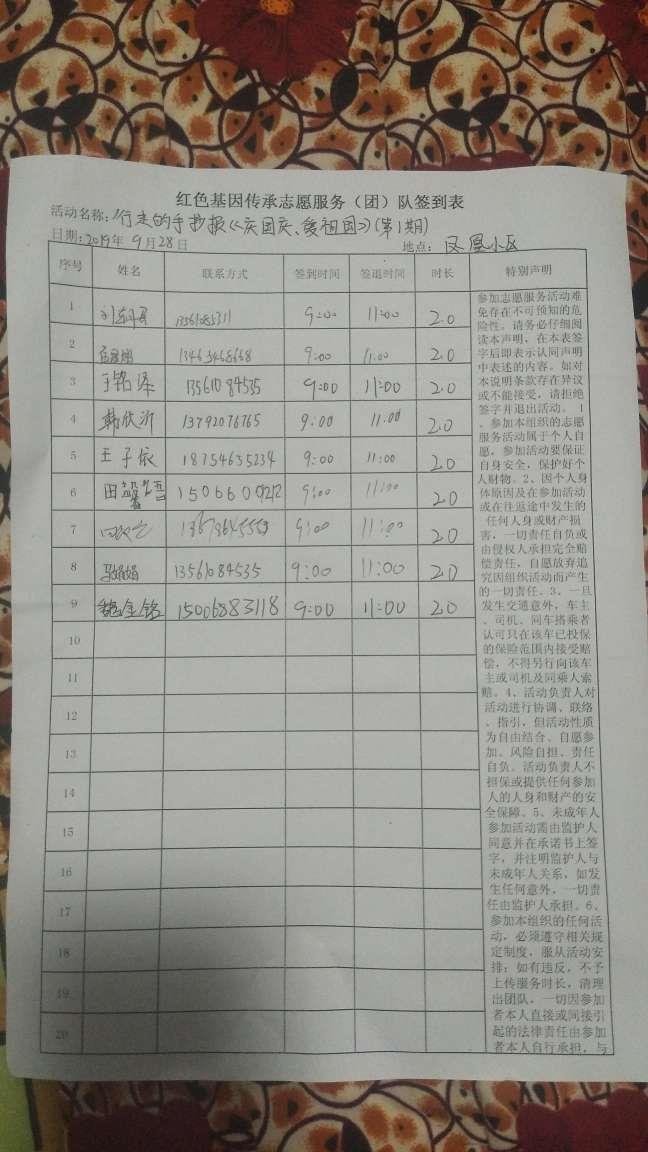 红色基因传承志愿服务（团）队签到表
活动名称：行走的手抄报《庆国庆、爱祖国》(第1期)
日期：2019年 9月28日 地点：凤凰小区
序号 姓名 联系方式 签到时间 签退时间 时长 特别声明
1 9:00 11:00 2.0
2 13465468668 9:00 11:00 2.0
3 王铭泽 13561084535 9:00 11:00 2.0
4 韩欣沂 13792076765 9:00 11:00 2.0
5 王子依 18754635234 9:00 11:00 2.0
6 田 9:00 11:00 2.0
7 9:00 11:00 2.0
8 13561084535 9:00 11:00 2.0
9 魏金铭 15006883118 9:00 11:00 2.0
10
11
12
13
14
15
16
17
18
19
20
参加志愿服务活动难
免存在不可预知的危
险性。请务必仔细阅
读本声明，在本表签
字后即表示认同声明
中表述的内容。如对
本说明条款存在异议
或不能接受，请拒绝
签字并退出活动。 1
、参加本组织的志愿
服务活动属于个人自
愿，参加活动要保证
自身安全，保护好个
人财物。2、因个人身
体原因及在参加活动
或在往返途中发生的
任何人身或财产损
害，一切责任自负或
由侵权人承担完全赔
偿责任，自愿放弃追
究因组织活动而产生
的一切责任。3、一旦
发生交通意外，车主
、司机、同车搭乘者
认可只在该车已投保
的保险范围内接受赔
偿，不得另行向该车
主或司机及同乘人索
赔。4、活动负责人对
活动进行协调、联络
、指引，但活动性质
为自由结合、自愿参
加、风险自担、责任
自负。活动负责人不
担保或提供任何参加
人的人身和财产的安
全保障。5、未成年人
参加活动需由监护人
同意并在承诺书上签
字，并注明监护人与
未成年人关系，如发
生任何意外，一切责
任由监护人承担。6、
参加本组织的任何活
动，必须遵守相关规
定制度，服从活动安
排；如有违反，不予
上传服务时长，清理
出团队，一切因参加
者本人直接或间接引
起的法律责任由参加
者本人自行承担，与